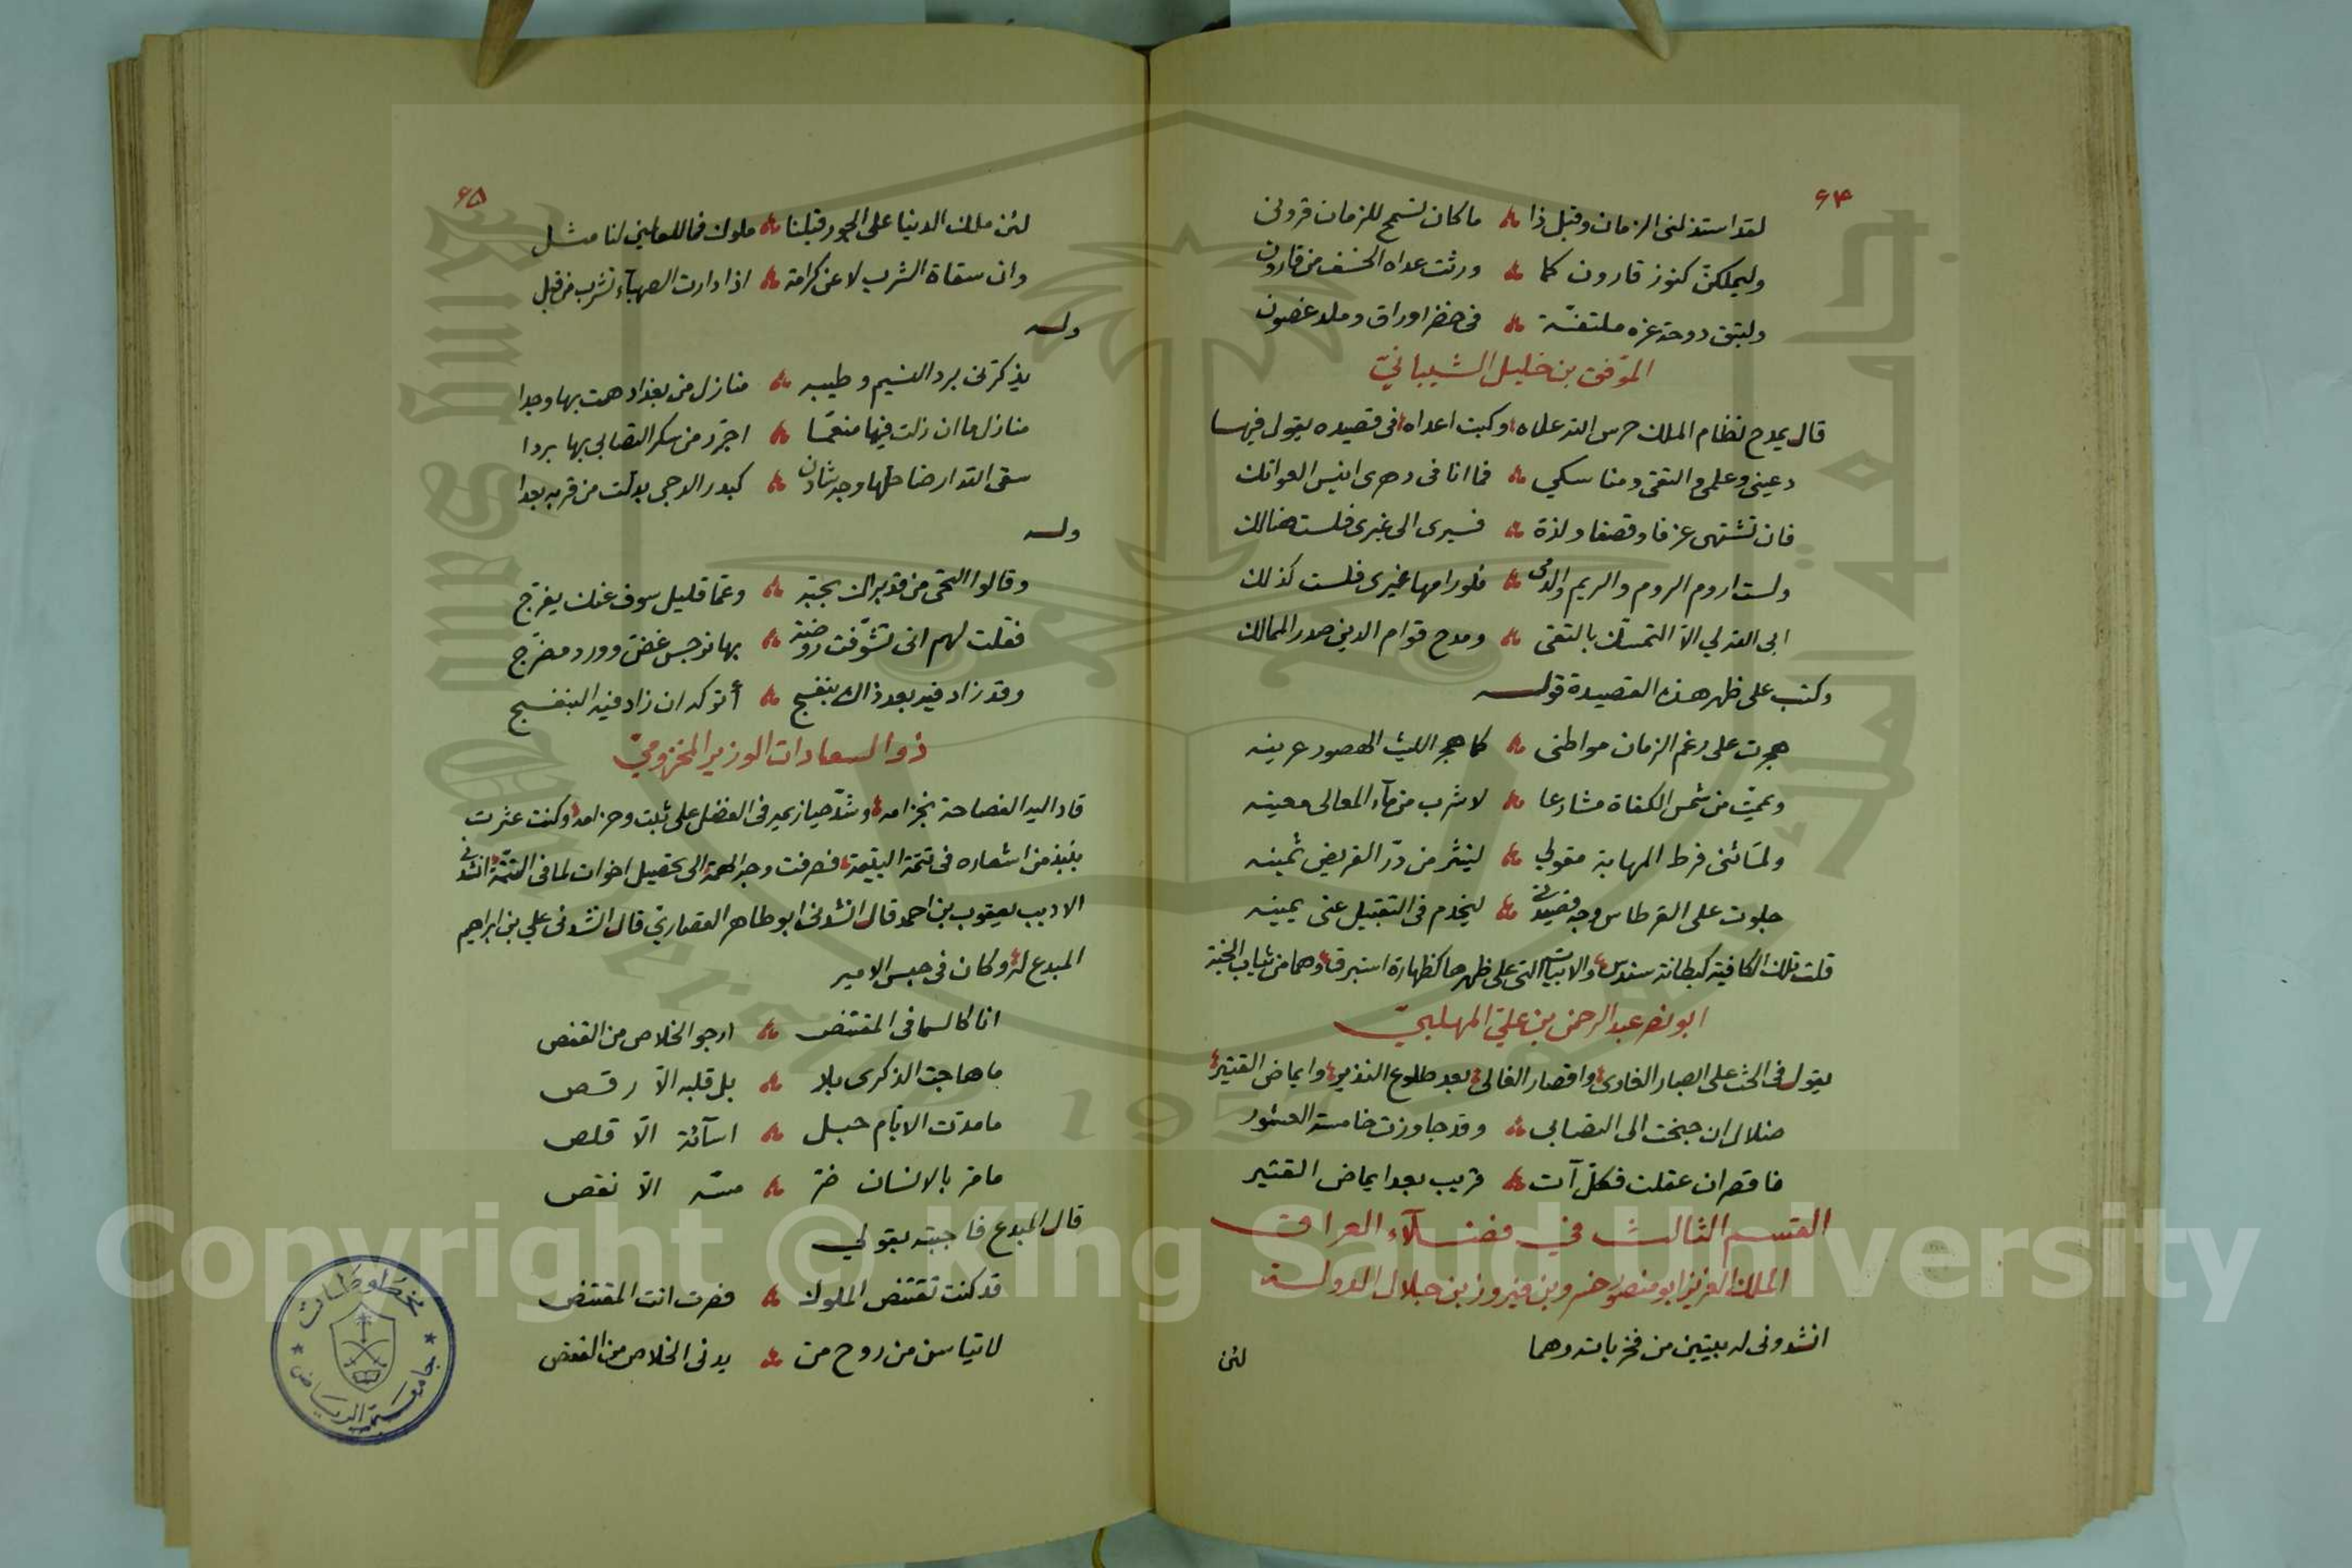 ٦٤
لقد استذلنى الزمان وقبل ذا ما كان تسمح للزمان قرونى
وليملكن كنوز قارون كما ورثت عداه الخسف من قارون
ولتبق دوحة عزه ملتفة فى خضر اوراق وملد غصون
الموفق بن خليل الشيبانيّ
قال يمدح نظام الملك حرس الله علاه وكبت اعداه فى قصيده يقول فيها
دعينى وعلمى والتقى ومناسكي فما انا فى دهرى انيس العواتك
فان تشتهى عزفا وقصفا ولذة فسيرى الى غيرى فلست هنالك
ولست اروم الروم والريم والدمى فلو رامها غيرى فلست كذلك
ابى الله لي الا التمسك بالتقى ومدح قوام الدين صدر الممالك
وكتب على ظهر هذه القصيدة قوله
هجرت على رغم الزمان مواطنى كما هجر الليث الهصور عرينه
ويممت من شمس الكفاة مشارعا لاشرب من مآء المعالى معينه
ولما ثنى فرط المهابة مقولي لينثر من درّ القريض ثمينه
جلوت على القرطاس وجه قصيدتى ليخدم فى التقبيل عنى يمينه
قلت تلك الكافية كبطانة سندس والابيات التى على ظهرها كظهارة استبرق وهما من ثياب الجنة
ابو نصر عبد الرحمن بن عليّ المهلبيّ
يقول فى الحث على اقصار الغالى بعد طلوع النذير وايماض القتير
ضلال ان جنحت الى التصابى وقد جاوزت خامسة العشور
فاقصر ان عقلت فكل آت قريب بعد ايماض القتير
القسم الثالث في فضلآء العراق
الملك العزيز ابو منصور خسرو بن فيروز بن جلال الدولة
انشدونى له بيتين من فخرياته وهما
لئن
٦٥
لئن ملك الدنيا على الجور قبلنا ملوك فما للعالمين لنا مثل
وان سقاة الشرب لا عن كرامة اذا دارت الصهبآء تشرب من قبل
وله
يذكرنى برد النسيم وطيبه منازل من بغداد همت بها وجدا
منازل ما ان زلت فيها منعما اجرّر من سكر التصابى بها بردا
سقى الله ارضا حلها وجه شادن كبدر الدجى بدلت من قربه بعدا
وله
وقالوا التحى من قد براك بحبه وعما قليل سوف عنك يفرّج
فقلت لهم انى تشوّفت روضة بها نرجس غض وورد مضرّج
وقد زاد فيه بعد ذاك بنفسج أنتركه ان زاد فيه البنفسج
ذو السعادات الوزير المخزوميّ
قاد اليه الفصاحة بخزامه وشدّ حيازيمه فى الفضل على ثبت وحزامه وكنت عثرت
بنبذ من اشعاره فى تتمة اليتيمة فصرفت وجه الهمة الى تحصيل اخوات لما فى التتمة انشدنى
الاديب يعقوب بن احمد قال انشدنى ابو طاهر القصاري قال انشدنى علي بن ابراهيم
المبدع له وكان فى حبس الامير
انا كالسما فى المقتنص ارجو الخلاص من القفص
ما هاجت الذكرى بلا بل قلبه الاّ رقص
ما مدت الايام حبل اسآئة الاّ قلص
ما مر بالانسان ضرّ مسّه الاّ نقص
قال المبدع فاجبته بقولي
قد كنت تقتنص الملوك فصرت انت المقتنص
لا تياسن من روح من يدنى الخلاص من القفص
مخطوطات
جامعة الرياض
Copyright © King Saud University
جامعة الملك سعود
King Saud University
1957